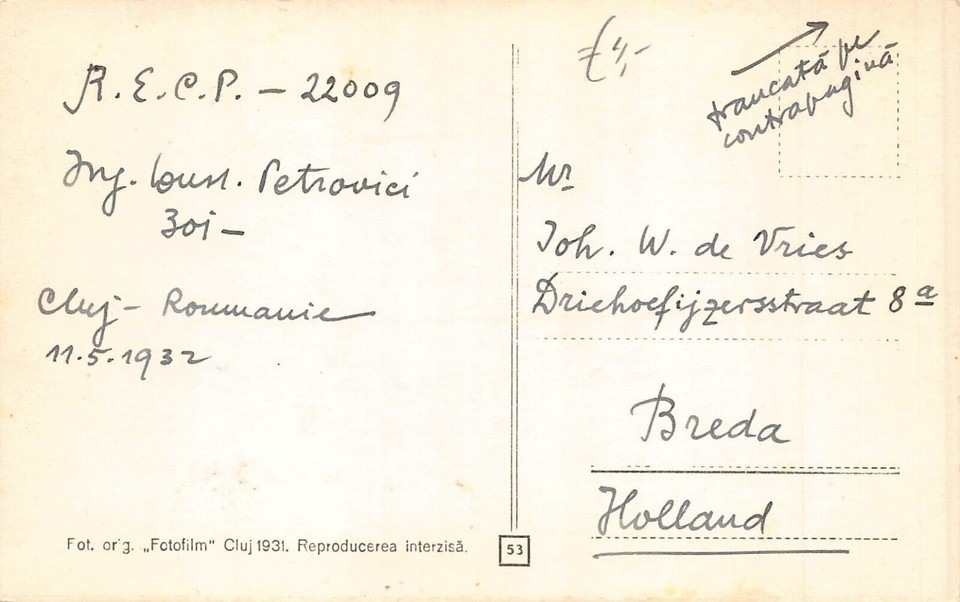 R.E.C.P. – 22009
Ing. Petrovici
Cluj – Roumanie
11.5.1932
Fot. orig. „Fotofilm" Cluj 1931. Reproducerea interzisă.
53
€ 4,-
francată pe
contrapagină
Mr
Joh. W. de Vries
Driehoefijzersstraat 8a
Breda
Holland